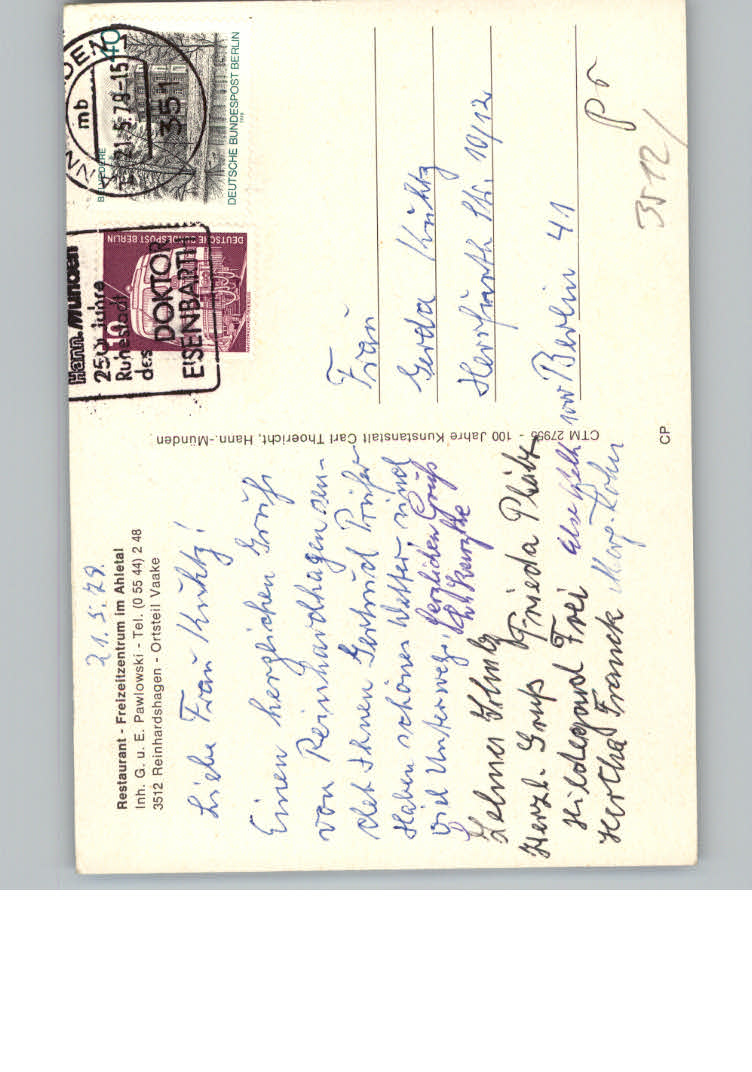 21.5.79.
Restaurant - Freizeitzentrum im Ahletal
Inh. G. u. E. Pawlowski - Tel. (0 55 44) 2 48
3512 Reinhardshagen - Ortsteil Vaake
Liebe Frau Kuhtz!
Einen herzlichen Gruß
von Reinhardhagen sen-
det Ihnen Gertrud Prüfer
Haben schönes Wetter sind
viel Unterwegs. Herzlichen Gruß
Herzl. Gruß Frieda
Hildegard Frei
Hertha Franck
CTM 27995 - 100 Jahre Kunstanstalt Carl Thoericht, Hann.-Münden
CP
Hann. Münden
250 Jahre
Ruhestadt
des DOKTOR
EISENBARTH
10
DEUTSCHE BUNDESPOST BERLIN
40
BELVEDERE
DEUTSCHE BUNDESPOST BERLIN
mb
21.5.79-15
351
Frau
Gerda Kuhtz
Herrfurth Str. 10/12
Berlin 41
3512/